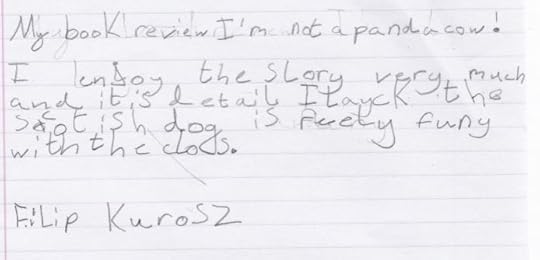 My book review I'm not a panda cow!
I enjoy the story very much
and it is detail I layck the
scotish dog is preety funy
with the clods.
FiLip KuroSZ